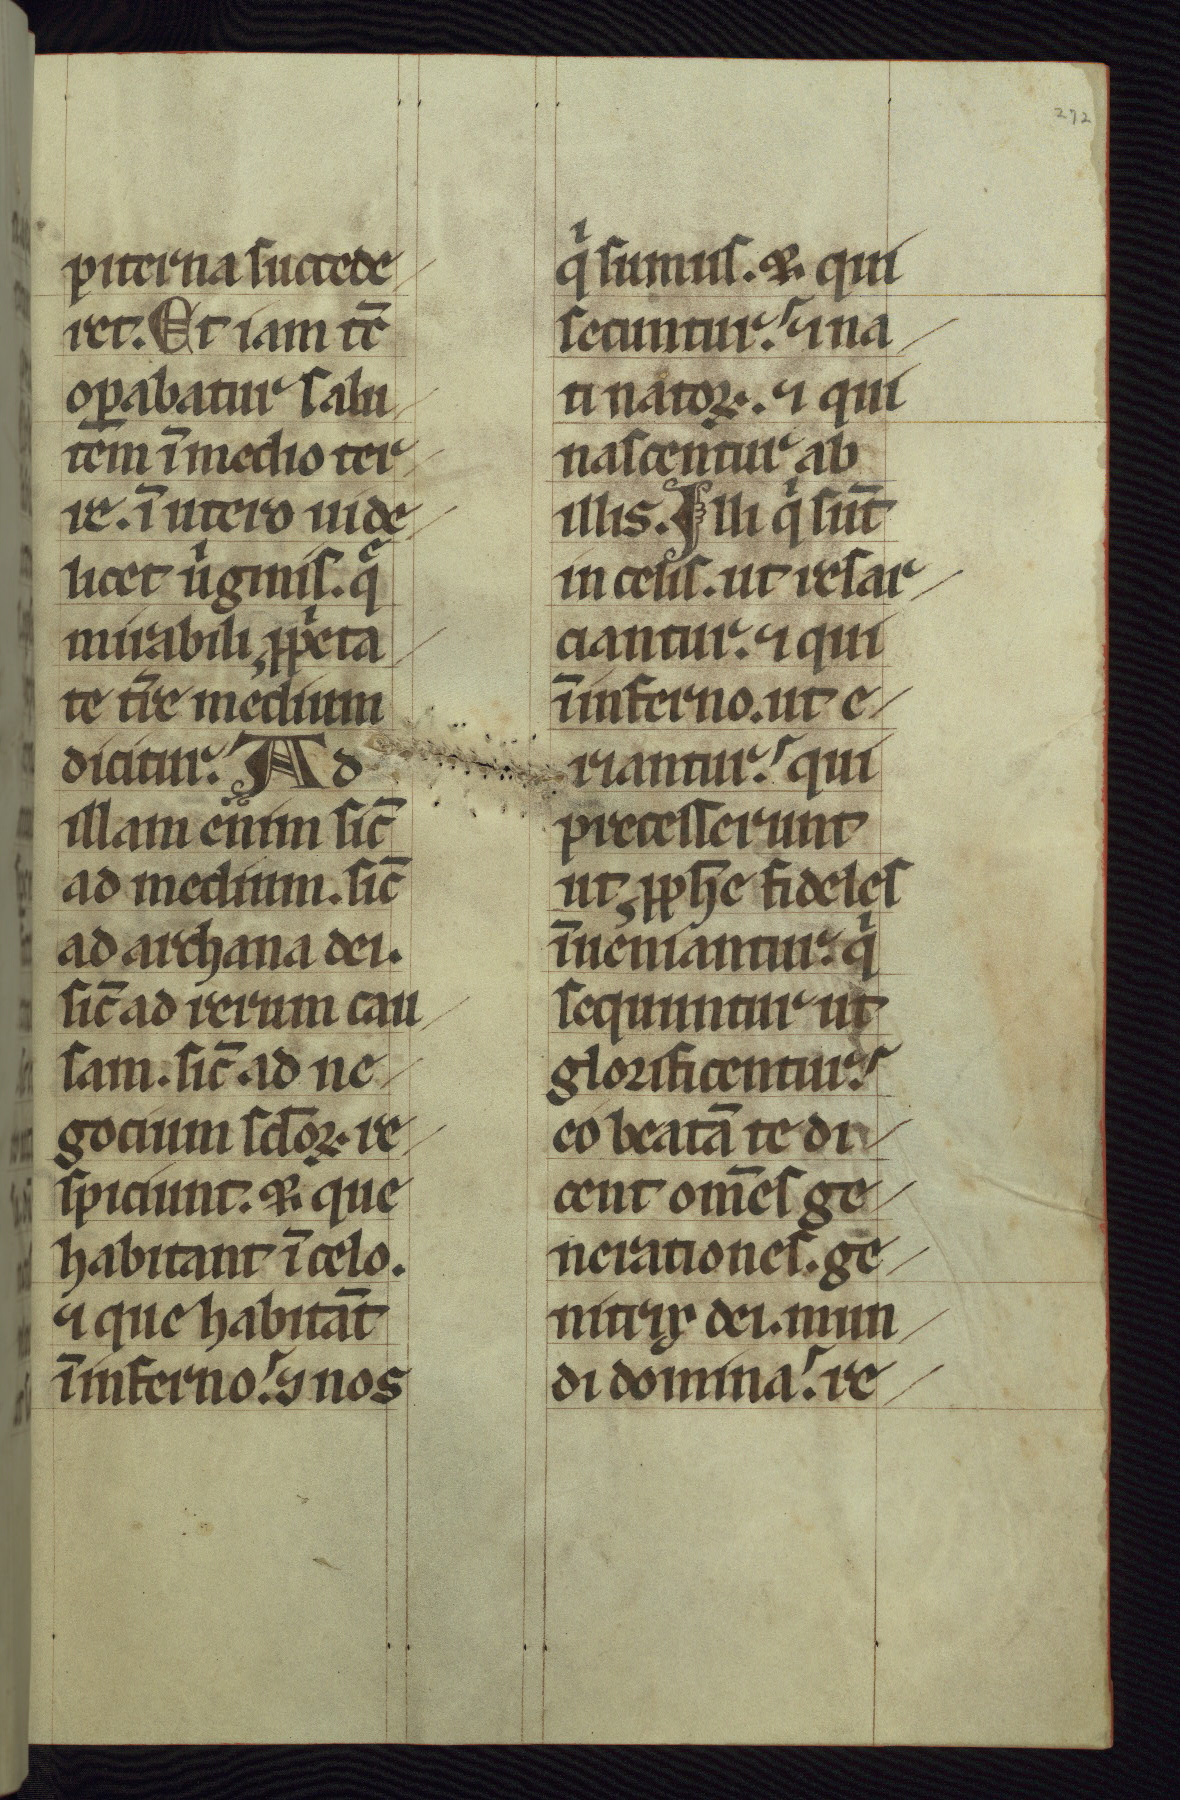 272
piterna succede
ret. Et iam tē
oꝑabatur salu
tem̄ ī medio ter
re. ī utero uide
licet uͥginis. q̄
mirabili ꝓpͥeta
te tr̄e medium
dicitur. Ad
illam enim sic̄
ad medium. sic̄
ad archana dei.
sic̄ ad rerum cau
sam. sic̄ ad ne
gocium scl̄oꝝ re
spiciunt. ⁊ que
habitant ī celo.
⁊ que habitāt
ī inferno. ⁊ nos
qͥ sumus. ⁊ qui
secuntur. ⁊ na
ti natoꝝ. ⁊ qui
nascentur ab
illis. Illi qͥ sūt
in celis. ut resar
ciantur. ⁊ qui
ī inferno. ut e
riantur. qui
precesserunt
ut ꝓph̄e fideles
īueniantur. qͥ
sequuntur ut
glorificentur.
eo beatā te di
cent om̄es ge
nerationes. ge
nitrix dei. mun
di domina. re